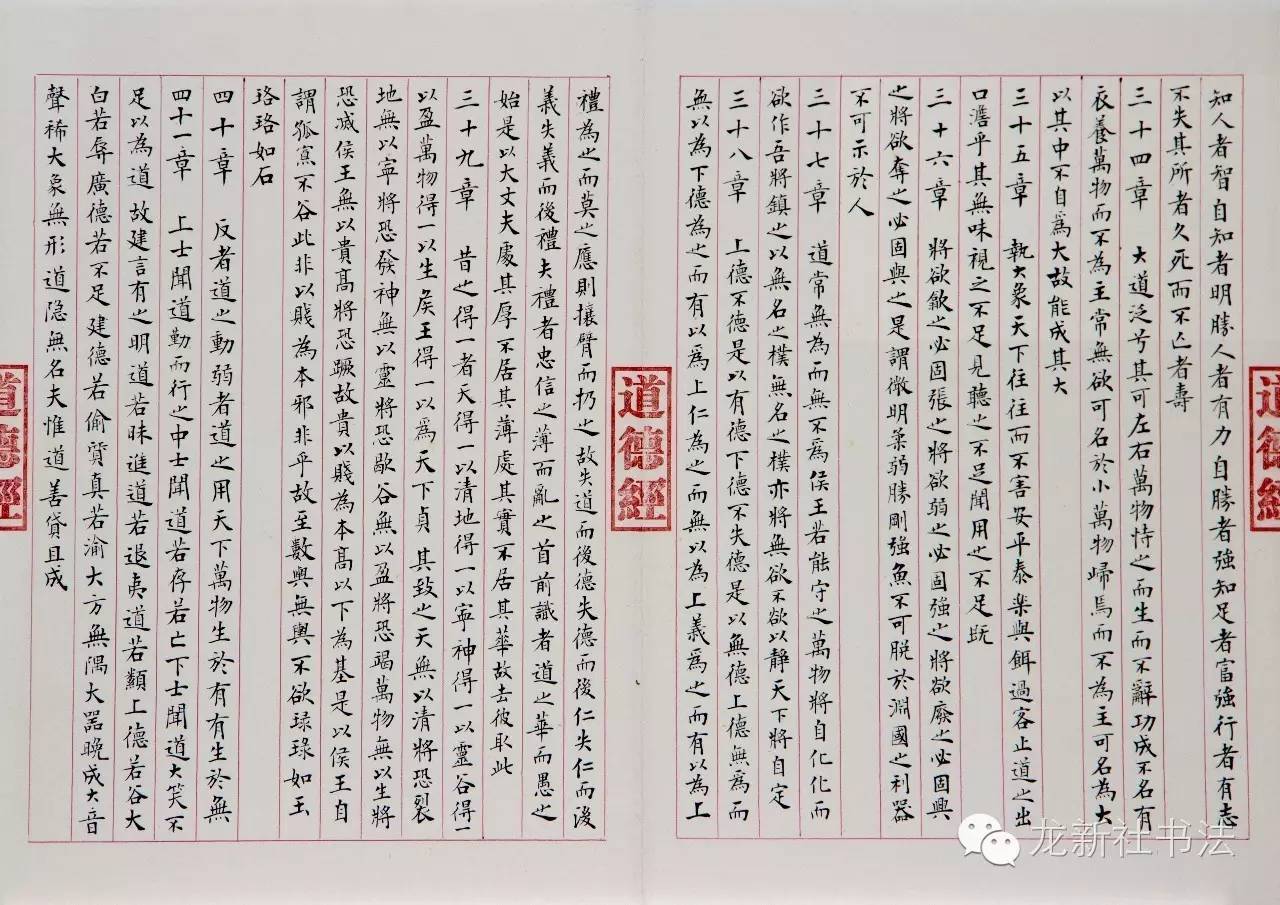 知人者智自知者明勝人者有力自勝者強知足者富強行者有志
不失其所者久死而不亡者壽
三十四章 大道泛兮其可左右萬物恃之而生而不辭功成不名有
衣養萬物而不為主常無欲可名於小萬物歸焉而不為主可名為大
以其中不自爲大故能成其大
三十五章 執大象天下往往而不害安平泰樂與餌過客止道之出
口澹乎其無味視之不足見聽之不足聞用之不足既
三十六章 將欲歙之必固張之將欲弱之必固強之將欲廢之必固興
之將欲奪之必固與之是謂微明柔弱勝剛強魚不可脫於淵國之利器
不可示於人
三十七章 道常無為而無不爲侯王若能守之萬物將自化化而
欲作吾將鎮之以無名之樸無名之樸亦將無欲不欲以靜天下將自定
三十八章 上德不德是以有德下德不失德是以無德上德無為而
無以為下德為之而有以爲上仁為之而無以為上義爲之而有以為上
道德經
禮為之而莫之應則攘臂而扔之故失道而後德失德而後仁失仁而後
義失義而後禮夫禮者忠信之薄而亂之首前識者道之華而愚之
始是以大丈夫處其厚不居其薄處其實不居其華故去彼取此
三十九章 昔之得一者天得一以清地得一以寧神得一以靈谷得一
以盈萬物得一以生侯王得一以爲天下貞其致之天無以清將恐裂
地無以寧將恐發神無以靈將恐歇谷無以盈將恐竭萬物無以生將
恐滅侯王無以貴高將恐蹶故貴以賤為本高以下為基是以侯王自
謂孤寡不谷此非以賤為本邪非乎故至數輿無輿不欲琭琭如玉
珞珞如石
四十章 反者道之動弱者道之用天下萬物生於有有生於無
四十一章 上士聞道勤而行之中士聞道若存若亡下士聞道大笑不
足以為道故建言有之明道若昧進道若退夷道若纇上德若谷大
白若辱廣德若不足建德若偷質真若渝大方無隅大器晚成大音
聲稀大象無形道隐無名夫惟道善貸且成
道德經
龙新社书法